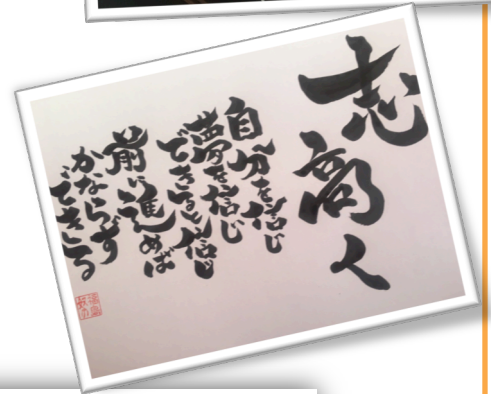 志商人
自分を信じ
夢を信じ
できると信じ
前に進めば
かならず
できる